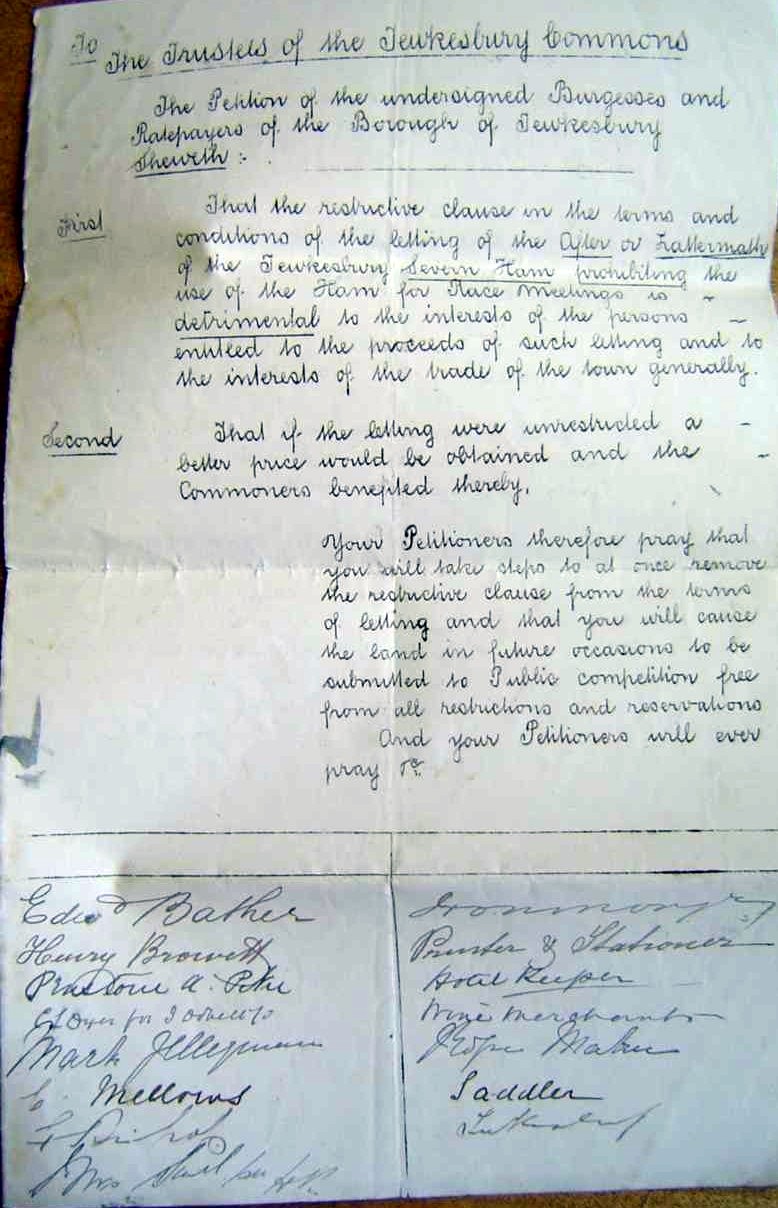 To
The Trustees of the Tewkesbury Commons
The Petition of the undersigned Burgesses and
Ratepayers of the Borough of Tewkesbury
Sheweth :-
First That the restrictive clause in the terms and
conditions of the letting of the After or Lattermath
of the Tewkesbury Severn Ham prohibiting the
use of the Ham for Race Meetings is ~
detrimental to the interests of the persons ~
entitled to the proceeds of such letting and to
the interests of the trade of the town generally.
Second That if the letting were unrestricted a -
better price would be obtained and the -
Commoners benefited thereby.
Your Petitioners therefore pray that
you will take steps to at once remove
the restrictive clause from the terms
of letting and that you will cause
the land in future occasions to be
submitted to Public competition free
from all restrictions and reservations
And your Petitioners will ever
pray &c.
Edwd Bather Ironmonger
Henry Browett Printer & Stationer
A. Hotel Keeper
for Wine Merchants
Mark Rope Maker
C. Mellows Saddler
Mrs